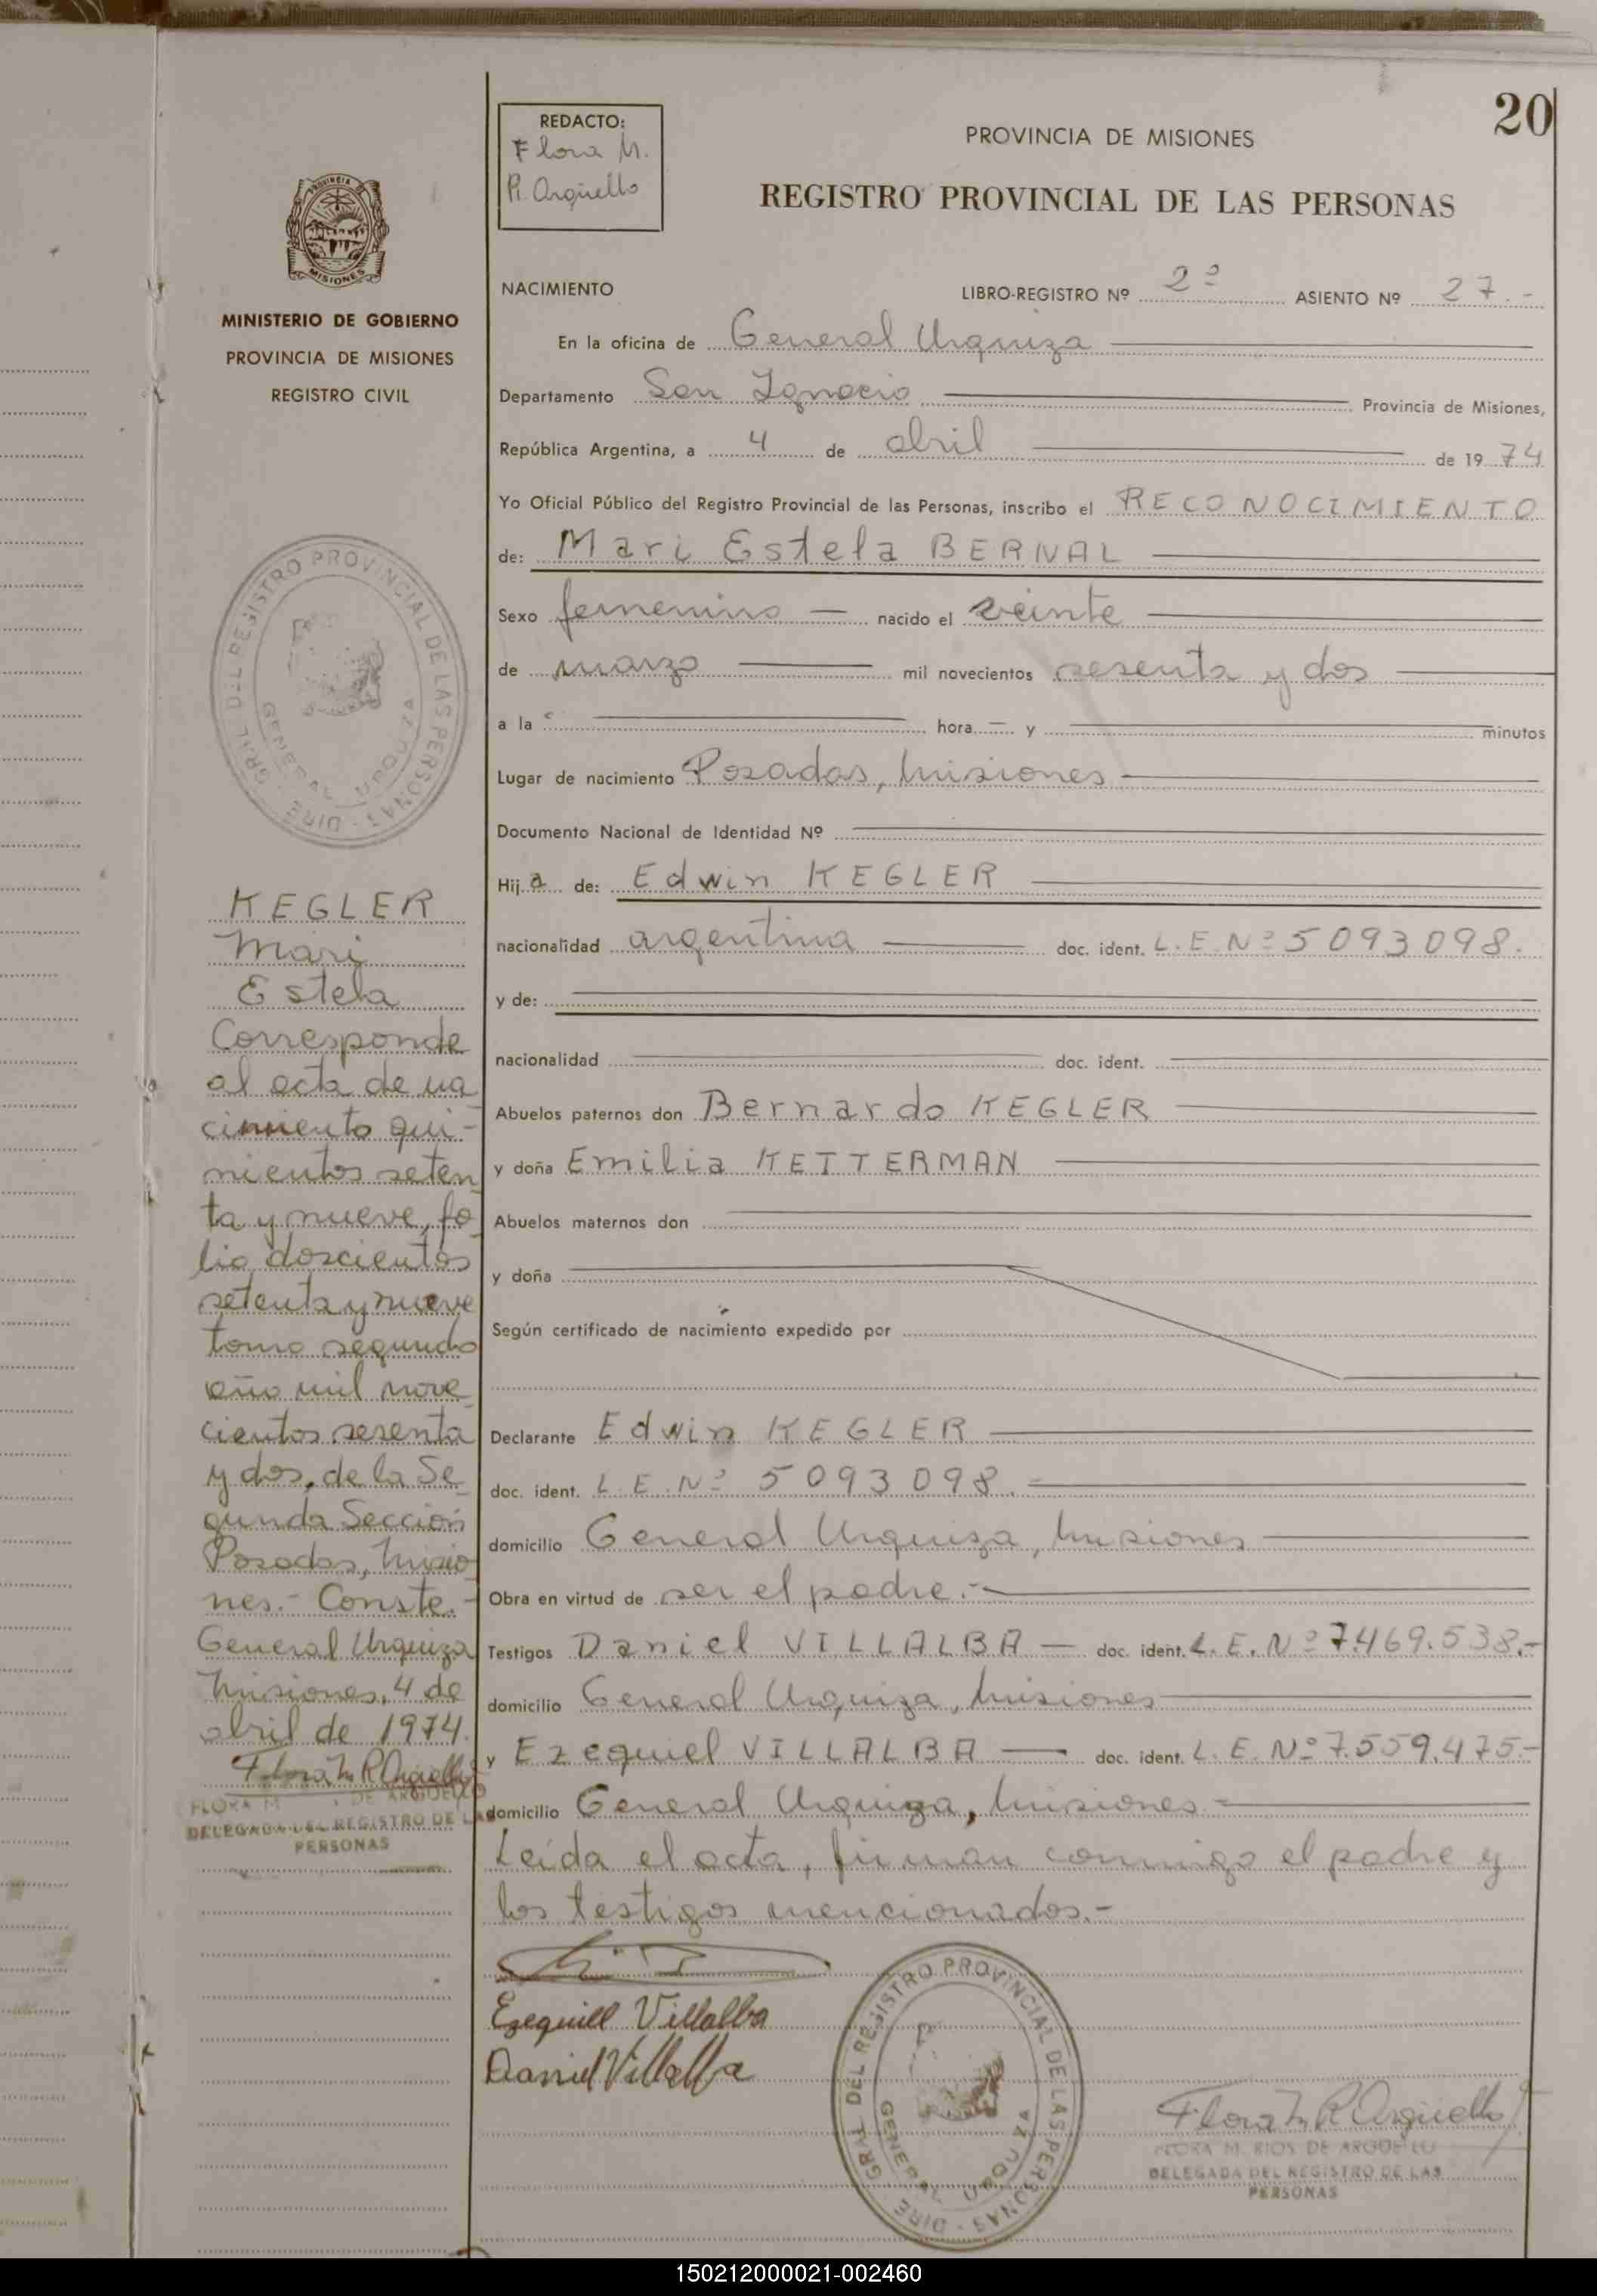 20
REDACTO:
Flora M.
R. Argüello
PROVINCIA DE MISIONES
REGISTRO PROVINCIAL DE LAS PERSONAS
PROVINCIA DE
MISIONES
MINISTERIO DE GOBIERNO
PROVINCIA DE MISIONES
REGISTRO CIVIL
NACIMIENTO
LIBRO-REGISTRO Nº 2º ASIENTO Nº 27.-
En la oficina de General Urquiza
Departamento San Ignacio Provincia de Misiones,
República Argentina, a 4 de abril de 1974
Yo Oficial Público del Registro Provincial de las Personas, inscribo el RECONOCIMIENTO
de: Mari Estela BERNAL
Sexo femenino — nacido el veinte
de marzo mil novecientos sesenta y dos
a la hora — y minutos
Lugar de nacimiento Posadas, Misiones
Documento Nacional de Identidad Nº
Hija de: Edwin KEGLER
nacionalidad argentina doc. ident. L.E.Nº 5093098.
y de:
nacionalidad doc. ident.
Abuelos paternos don Bernardo KEGLER
y doña Emilia KETTERMAN
Abuelos maternos don
y doña
Según certificado de nacimiento expedido por
Declarante Edwin KEGLER
doc. ident. L.E.Nº 5093098.
domicilio General Urquiza, Misiones
Obra en virtud de ser el padre.-
Testigos Daniel VILLALBA — doc. ident. L.E.Nº 7.469.538.-
domicilio General Urquiza, Misiones
y Ezequiel VILLALBA — doc. ident. L.E.Nº 7.559.475-
domicilio General Urquiza, Misiones.-
Leída el acta, firman conmigo el padre y
los testigos mencionados.-
Ezequiel Villalba
Daniel Villalba
Flora M R Argüello
FLORA M. RIOS DE ARGÜELLO
DELEGADA DEL REGISTRO DE LAS
PERSONAS
DIRE. GRAL. DEL REGISTRO PROVINCIAL DE LAS PERSONAS
GENERAL URQUIZA
DIRE. GRAL. DEL REGISTRO PROVINCIAL DE LAS PERSONAS
GENERAL URQUIZA
KEGLER
Mari
Estela
Corresponde
al acta de na
cimiento qui-
nientos seten
ta y nueve, fo
lio doscientos
setenta y nueve
tomo segundo
año mil nove
cientos sesenta
y dos, de la Se
gunda Sección
Posadas, Misio
nes.- Conste.-
General Urquiza
Misiones, 4 de
abril de 1974.
Flora M R Argüello
FLORA M DE ARGÜELLO
DELEGADA DEL REGISTRO DE LAS
PERSONAS
150212000021-002460